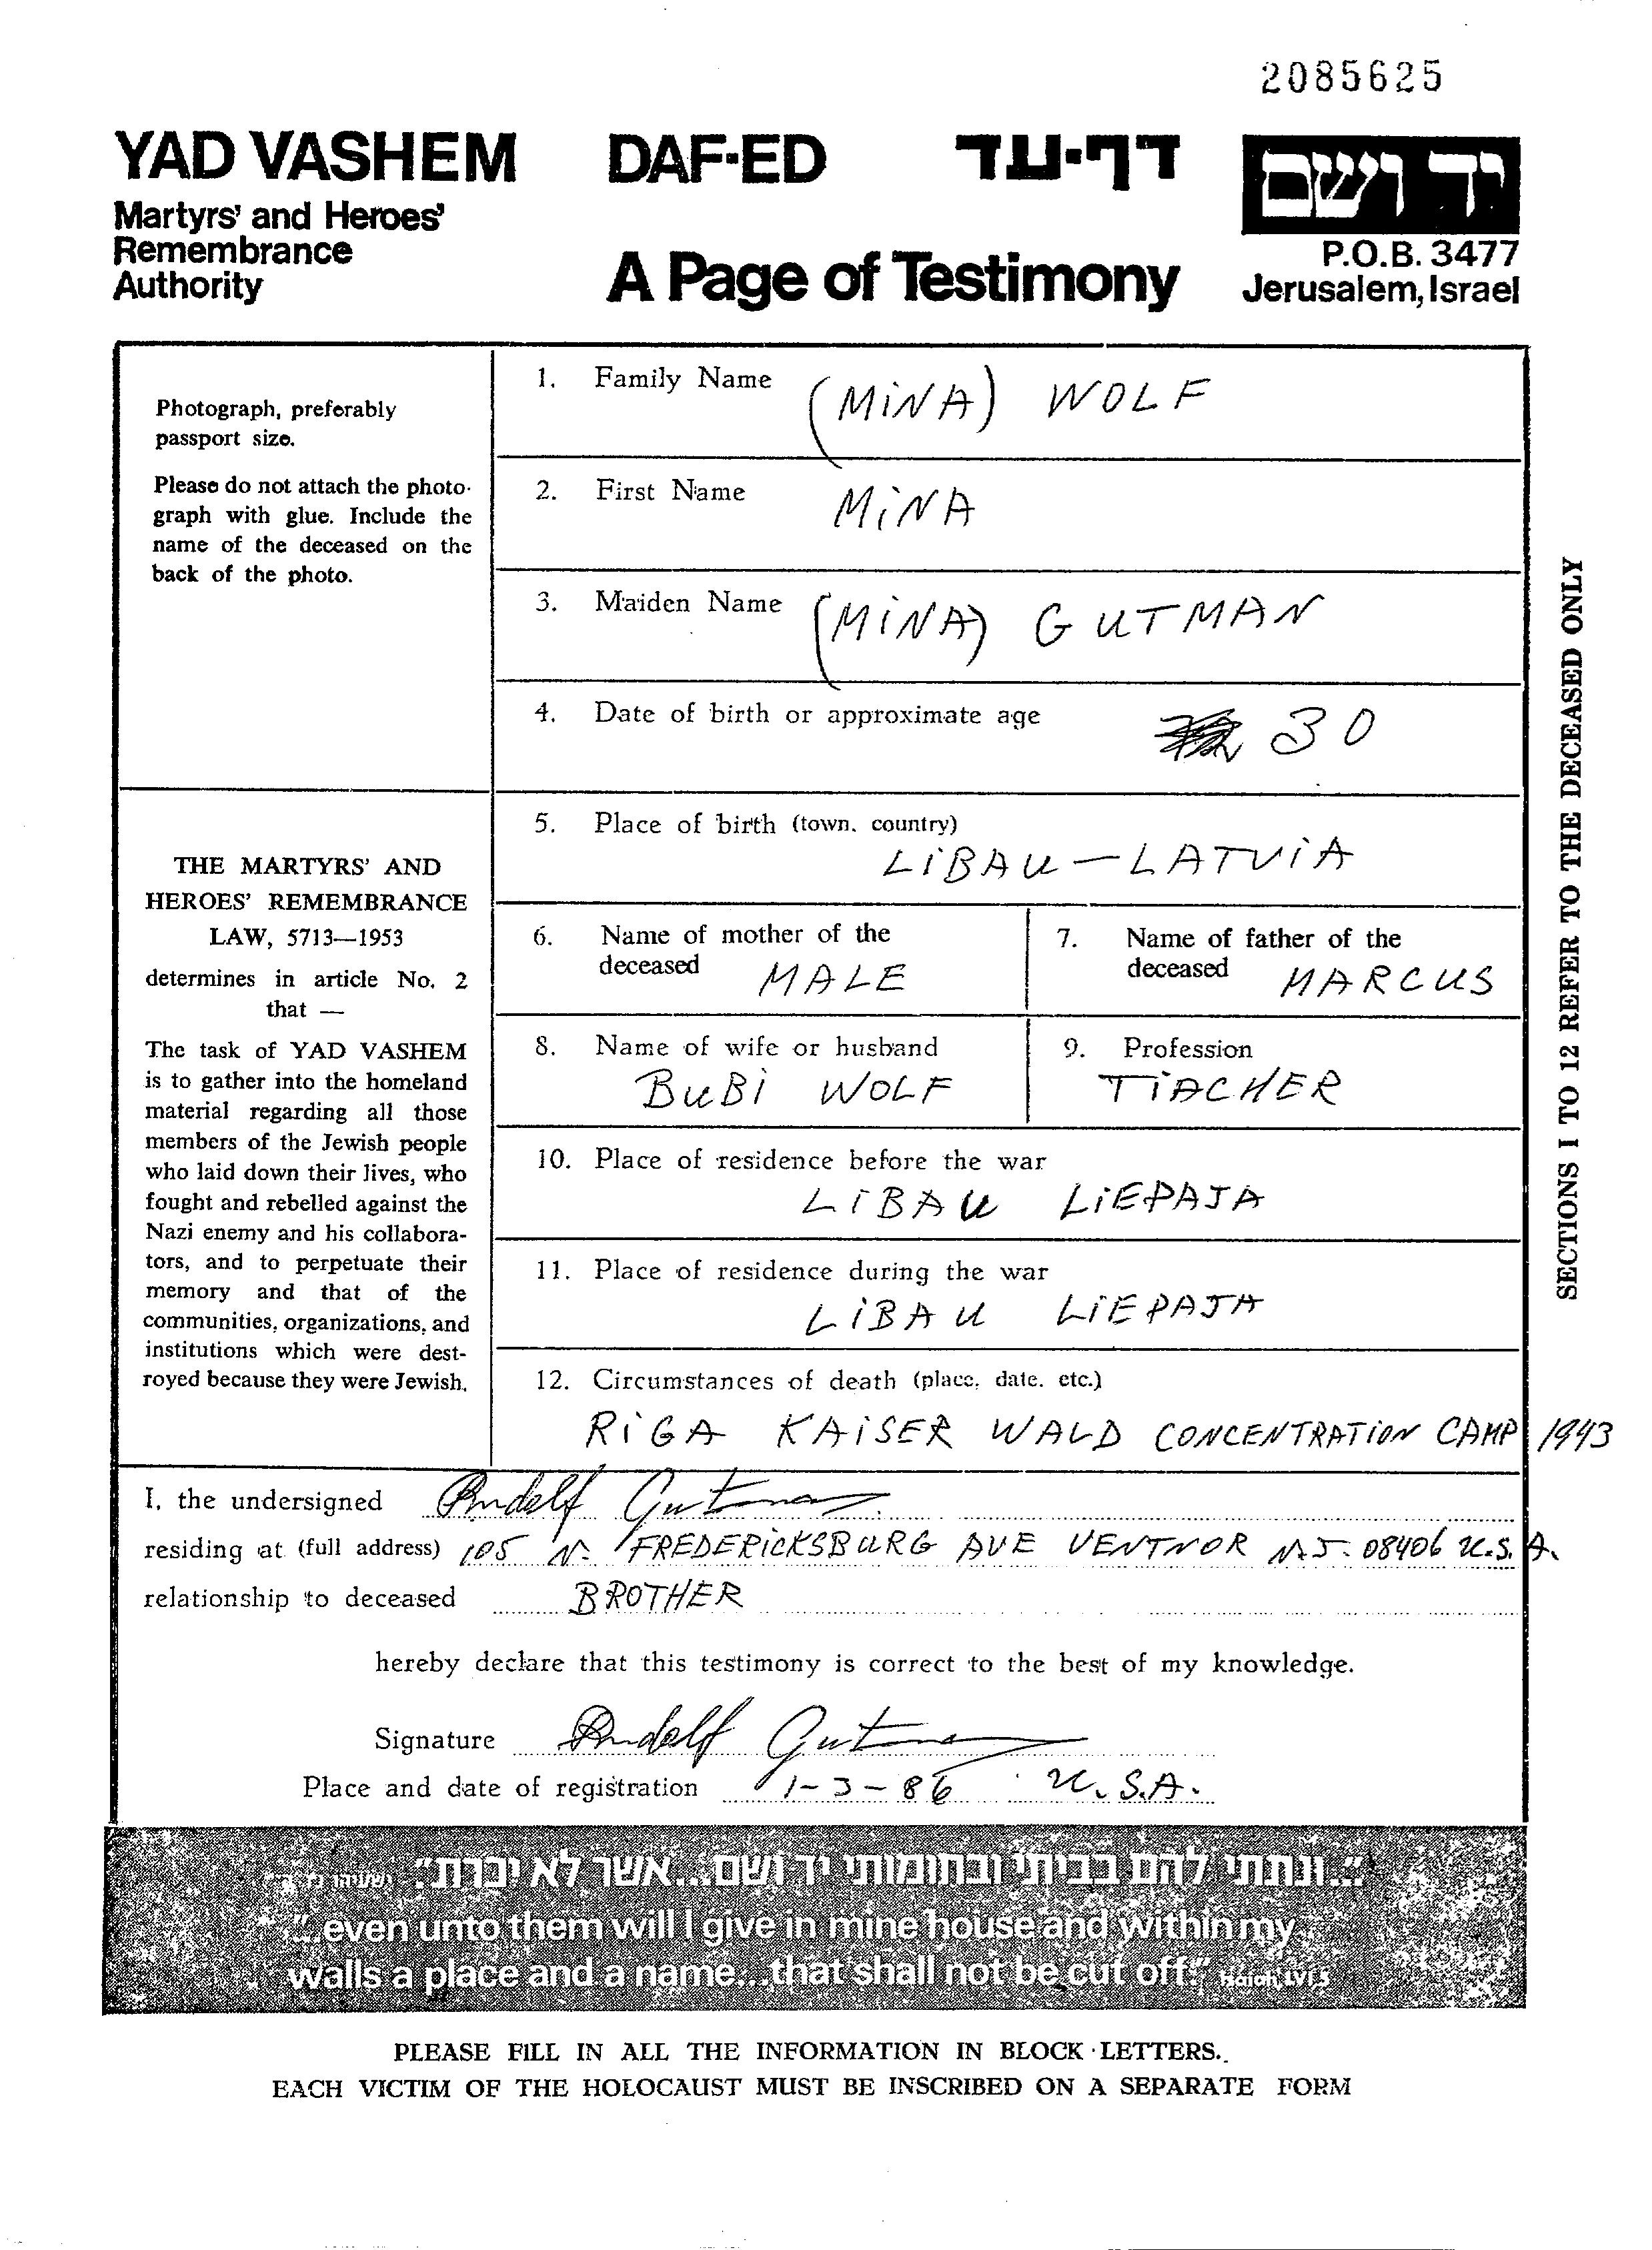 2085625
YAD VASHEM
Martyrs' and Heroes'
Remembrance
Authority
DAF-ED
דף-עד
A Page of Testimony
יד ושם
P.O.B. 3477
Jerusalem, Israel
Photograph, preferably
passport size.
Please do not attach the photo-
graph with glue. Include the
name of the deceased on the
back of the photo.
THE MARTYRS' AND
HEROES' REMEMBRANCE
LAW, 5713—1953
determines in article No. 2
that —
The task of YAD VASHEM
is to gather into the homeland
material regarding all those
members of the Jewish people
who laid down their lives, who
fought and rebelled against the
Nazi enemy and his collabora-
tors, and to perpetuate their
memory and that of the
communities, organizations, and
institutions which were dest-
royed because they were Jewish.
1. Family Name (MINA) WOLF
2. First Name MINA
3. Maiden Name (MINA) GUTMAN
4. Date of birth or approximate age 30
5. Place of birth (town, country)
LIBAU — LATVIA
6. Name of mother of the
deceased MALE
7. Name of father of the
deceased MARCUS
8. Name of wife or husband
BUBI WOLF
9. Profession
TIACHER
10. Place of residence before the war
LIBAU LIEPAJA
11. Place of residence during the war
LIBAU LIEPAJA
12. Circumstances of death (place, date, etc.)
RIGA KAISER WALD CONCENTRATION CAMP 1943
SECTIONS 1 TO 12 REFER TO THE DECEASED ONLY
I, the undersigned Rudolf Gutman
residing at (full address) 105 N. FREDERICKSBURG AVE VENTNOR N.J. 08406 U.S.A.
relationship to deceased BROTHER
hereby declare that this testimony is correct to the best of my knowledge.
Signature Rudolf Gutman
Place and date of registration 1-3-86 U.S.A.
"...ונתתי להם בביתי ובחומותי יד ושם...אשר לא יכרת."
"...even unto them will I give in mine house and within my
walls a place and a name...that shall not be cut off."
PLEASE FILL IN ALL THE INFORMATION IN BLOCK LETTERS.
EACH VICTIM OF THE HOLOCAUST MUST BE INSCRIBED ON A SEPARATE FORM